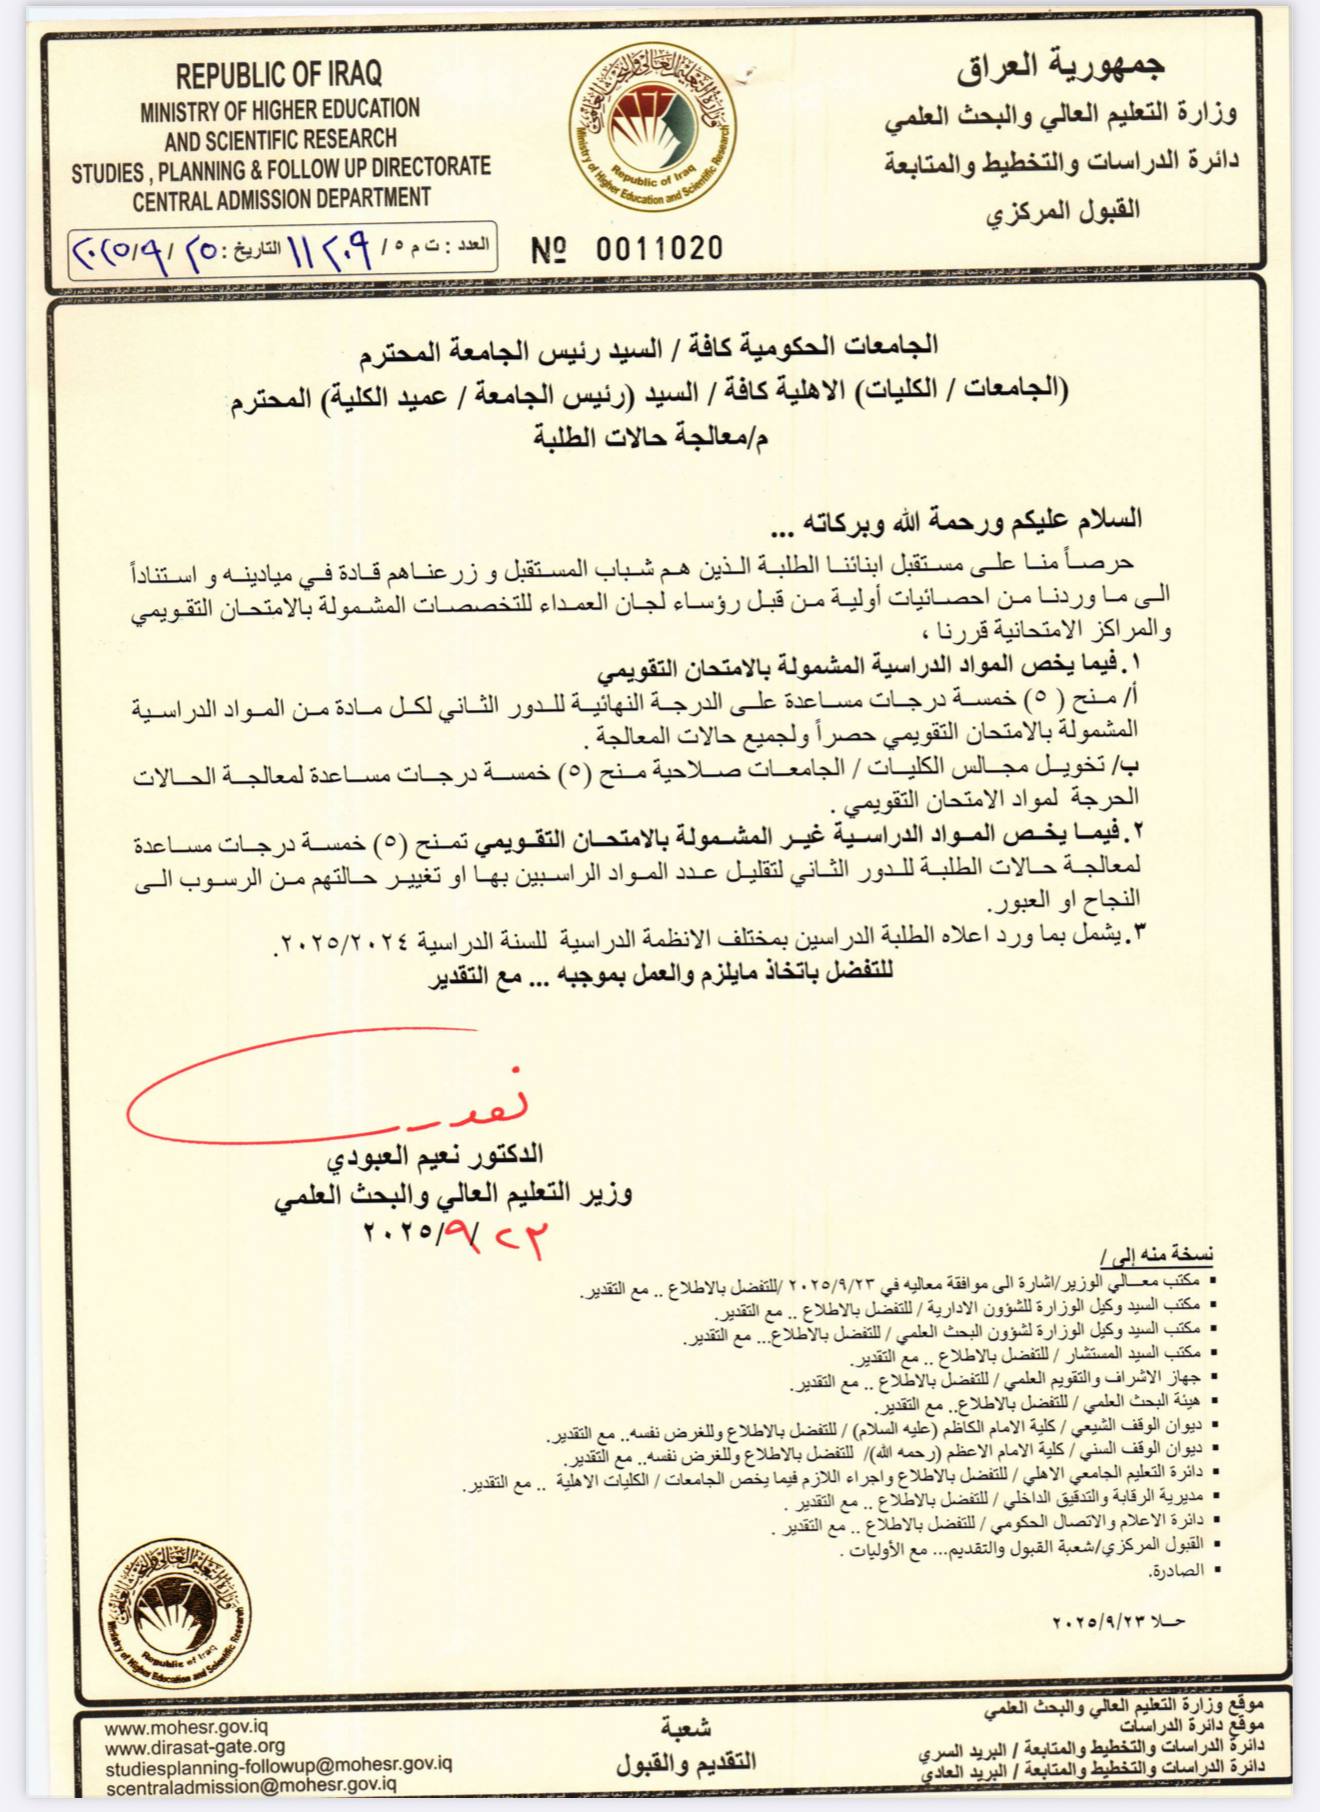 REPUBLIC OF IRAQ
MINISTRY OF HIGHER EDUCATION
AND SCIENTIFIC RESEARCH
STUDIES , PLANNING & FOLLOW UP DIRECTORATE
CENTRAL ADMISSION DEPARTMENT
وزارة التعليم العالي والبحث العلمي
Republic of Iraq
Ministry of Higher Education and Scientific Research
جمهورية العراق
وزارة التعليم العالي والبحث العلمي
دائرة الدراسات والتخطيط والمتابعة
القبول المركزي
العدد : ت م ٥ / ١١٢٠٩ التاريخ : ٢٥ / ٩ / ٢٠٢٥
№ 0011020
الجامعات الحكومية كافة / السيد رئيس الجامعة المحترم
(الجامعات / الكليات) الاهلية كافة / السيد (رئيس الجامعة / عميد الكلية) المحترم
م/معالجة حالات الطلبة
السلام عليكم ورحمة الله وبركاته ...
حرصاً منا على مستقبل ابنائنا الطلبة الذين هم شباب المستقبل و زرعناهم قادة في ميادينه و استناداً
الى ما وردنا من احصائيات أولية من قبل رؤساء لجان العمداء للتخصصات المشمولة بالامتحان التقويمي
والمراكز الامتحانية قررنا ،
١. فيما يخص المواد الدراسية المشمولة بالامتحان التقويمي
أ/ منح ( ٥) خمسة درجات مساعدة على الدرجة النهائية للدور الثاني لكل مادة من المواد الدراسية
المشمولة بالامتحان التقويمي حصراً ولجميع حالات المعالجة .
ب/ تخويل مجالس الكليات / الجامعات صلاحية منح (٥) خمسة درجات مساعدة لمعالجة الحالات
الحرجة لمواد الامتحان التقويمي .
٢. فيما يخص المواد الدراسية غير المشمولة بالامتحان التقويمي تمنح (٥) خمسة درجات مساعدة
لمعالجة حالات الطلبة للدور الثاني لتقليل عدد المواد الراسبين بها او تغيير حالتهم من الرسوب الى
النجاح او العبور.
٣. يشمل بما ورد اعلاه الطلبة الدراسين بمختلف الانظمة الدراسية للسنة الدراسية ٢٠٢٥/٢٠٢٤.
للتفضل باتخاذ مايلزم والعمل بموجبه ... مع التقدير
الدكتور نعيم العبودي
وزير التعليم العالي والبحث العلمي
٢٣ /٩/ ٢٠٢٥
نسخة منه إلى /
▪ مكتب معالي الوزير/اشارة الى موافقة معاليه في ٢٠٢٥/٩/٢٣ /للتفضل بالاطلاع .. مع التقدير.
▪ مكتب السيد وكيل الوزارة للشؤون الادارية / للتفضل بالاطلاع .. مع التقدير.
▪ مكتب السيد وكيل الوزارة لشؤون البحث العلمي / للتفضل بالاطلاع... مع التقدير.
▪ مكتب السيد المستشار / للتفضل بالاطلاع .. مع التقدير.
▪ جهاز الاشراف والتقويم العلمي / للتفضل بالاطلاع .. مع التقدير.
▪ هيئة البحث العلمي / للتفضل بالاطلاع.. مع التقدير.
▪ ديوان الوقف الشيعي / كلية الامام الكاظم (عليه السلام) / للتفضل بالاطلاع وللغرض نفسه.. مع التقدير.
▪ ديوان الوقف السني / كلية الامام الاعظم (رحمه الله)/ للتفضل بالاطلاع وللغرض نفسه.. مع التقدير.
▪ دائرة التعليم الجامعي الاهلي / للتفضل بالاطلاع واجراء اللازم فيما يخص الجامعات / الكليات الاهلية .. مع التقدير.
▪ مديرية الرقابة والتدقيق الداخلي / للتفضل بالاطلاع .. مع التقدير .
▪ دائرة الاعلام والاتصال الحكومي / للتفضل بالاطلاع .. مع التقدير .
▪ القبول المركزي/شعبة القبول والتقديم... مع الأوليات .
▪ الصادرة.
حلا ٢٠٢٥/٩/٢٣
وزارة التعليم العالي والبحث العلمي
Republic of Iraq
Ministry of Higher Education and Scientific Research
موقع وزارة التعليم العالي والبحث العلمي
موقع دائرة الدراسات
دائرة الدراسات والتخطيط والمتابعة / البريد السري
دائرة الدراسات والتخطيط والمتابعة / البريد العادي
شعبة
التقديم والقبول
www.mohesr.gov.iq
www.dirasat-gate.org
studiesplanning-followup@mohesr.gov.iq
scentraladmission@mohesr.gov.iq